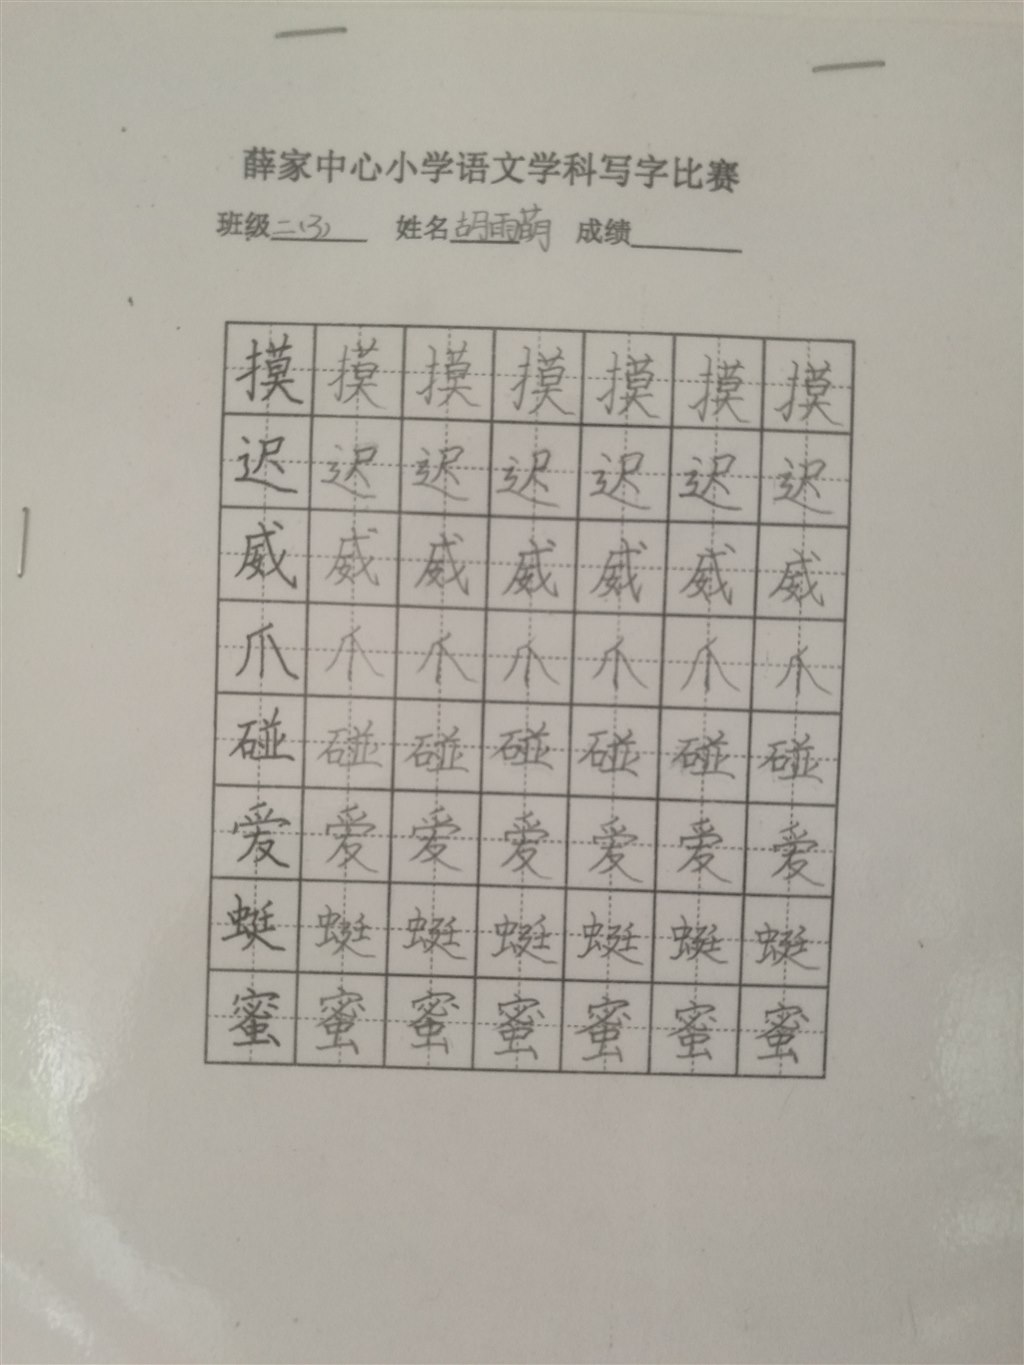 薛家中心小学语文学科写字比赛
班级二(3) 姓名胡雨萌 成绩
摸摸摸摸摸摸摸
迟迟迟迟迟迟迟
威威威威威威威
爪爪爪爪爪爪爪
碰碰碰碰碰碰碰
爱爱爱爱爱爱爱
蜓蜓蜓蜓蜓蜓蜓
蜜蜜蜜蜜蜜蜜蜜